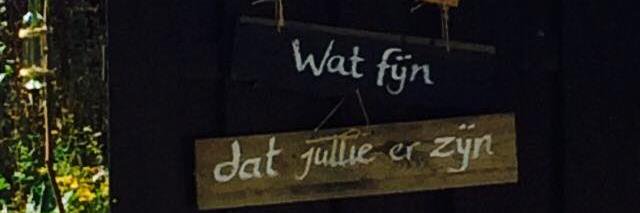 Wat fijn
dat jullie er zijn